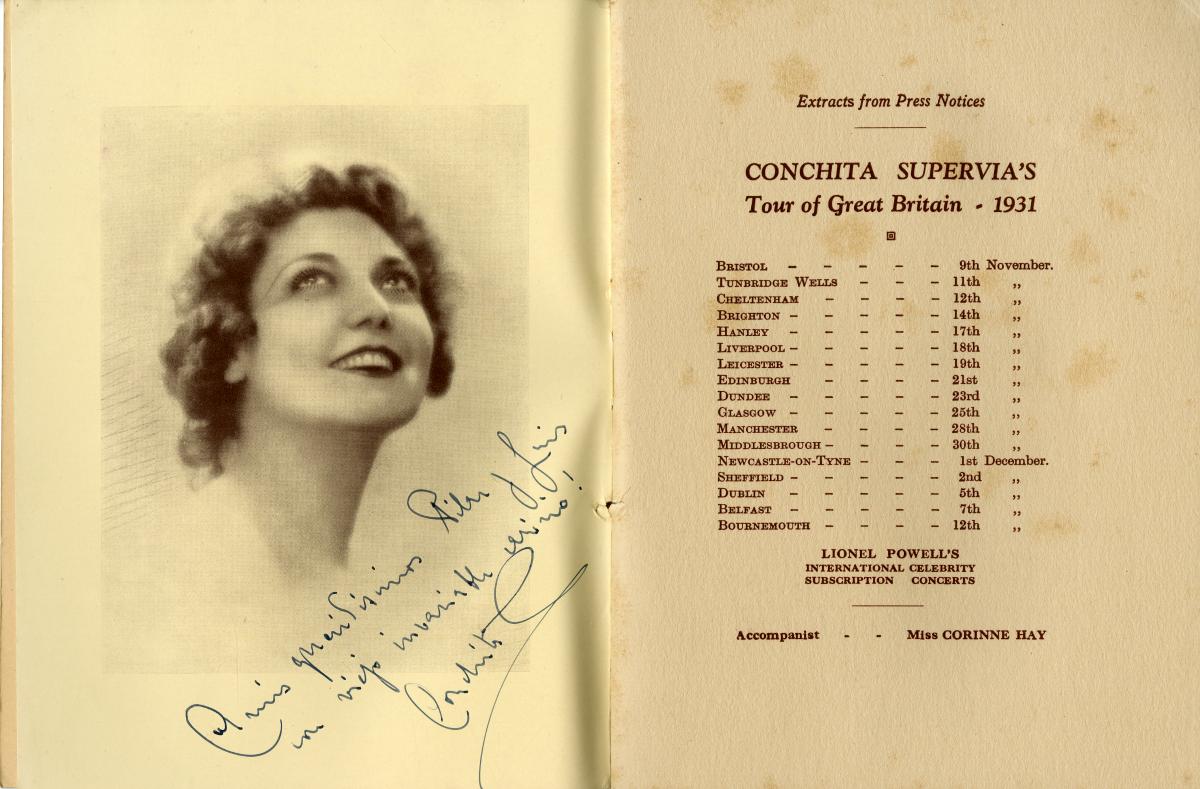 A mis queridísimos Pilar y Luis
con viejo invariable cariño!
Conchita
Extracts from Press Notices
CONCHITA SUPERVIA'S
Tour of Great Britain - 1931
BRISTOL - - - - - 9th November.
TUNBRIDGE WELLS - - - 11th „
CHELTENHAM - - - - 12th „
BRIGHTON - - - - - 14th „
HANLEY - - - - - 17th „
LIVERPOOL - - - - - 18th „
LEICESTER - - - - - 19th „
EDINBURGH - - - - 21st „
DUNDEE - - - - - 23rd „
GLASGOW - - - - - 25th „
MANCHESTER - - - - 28th „
MIDDLESBROUGH - - - - 30th „
NEWCASTLE-ON-TYNE - - - 1st December.
SHEFFIELD - - - - - 2nd „
DUBLIN - - - - - 5th „
BELFAST - - - - - 7th „
BOURNEMOUTH - - - - 12th „
LIONEL POWELL'S
INTERNATIONAL CELEBRITY
SUBSCRIPTION CONCERTS
Accompanist - - Miss CORINNE HAY